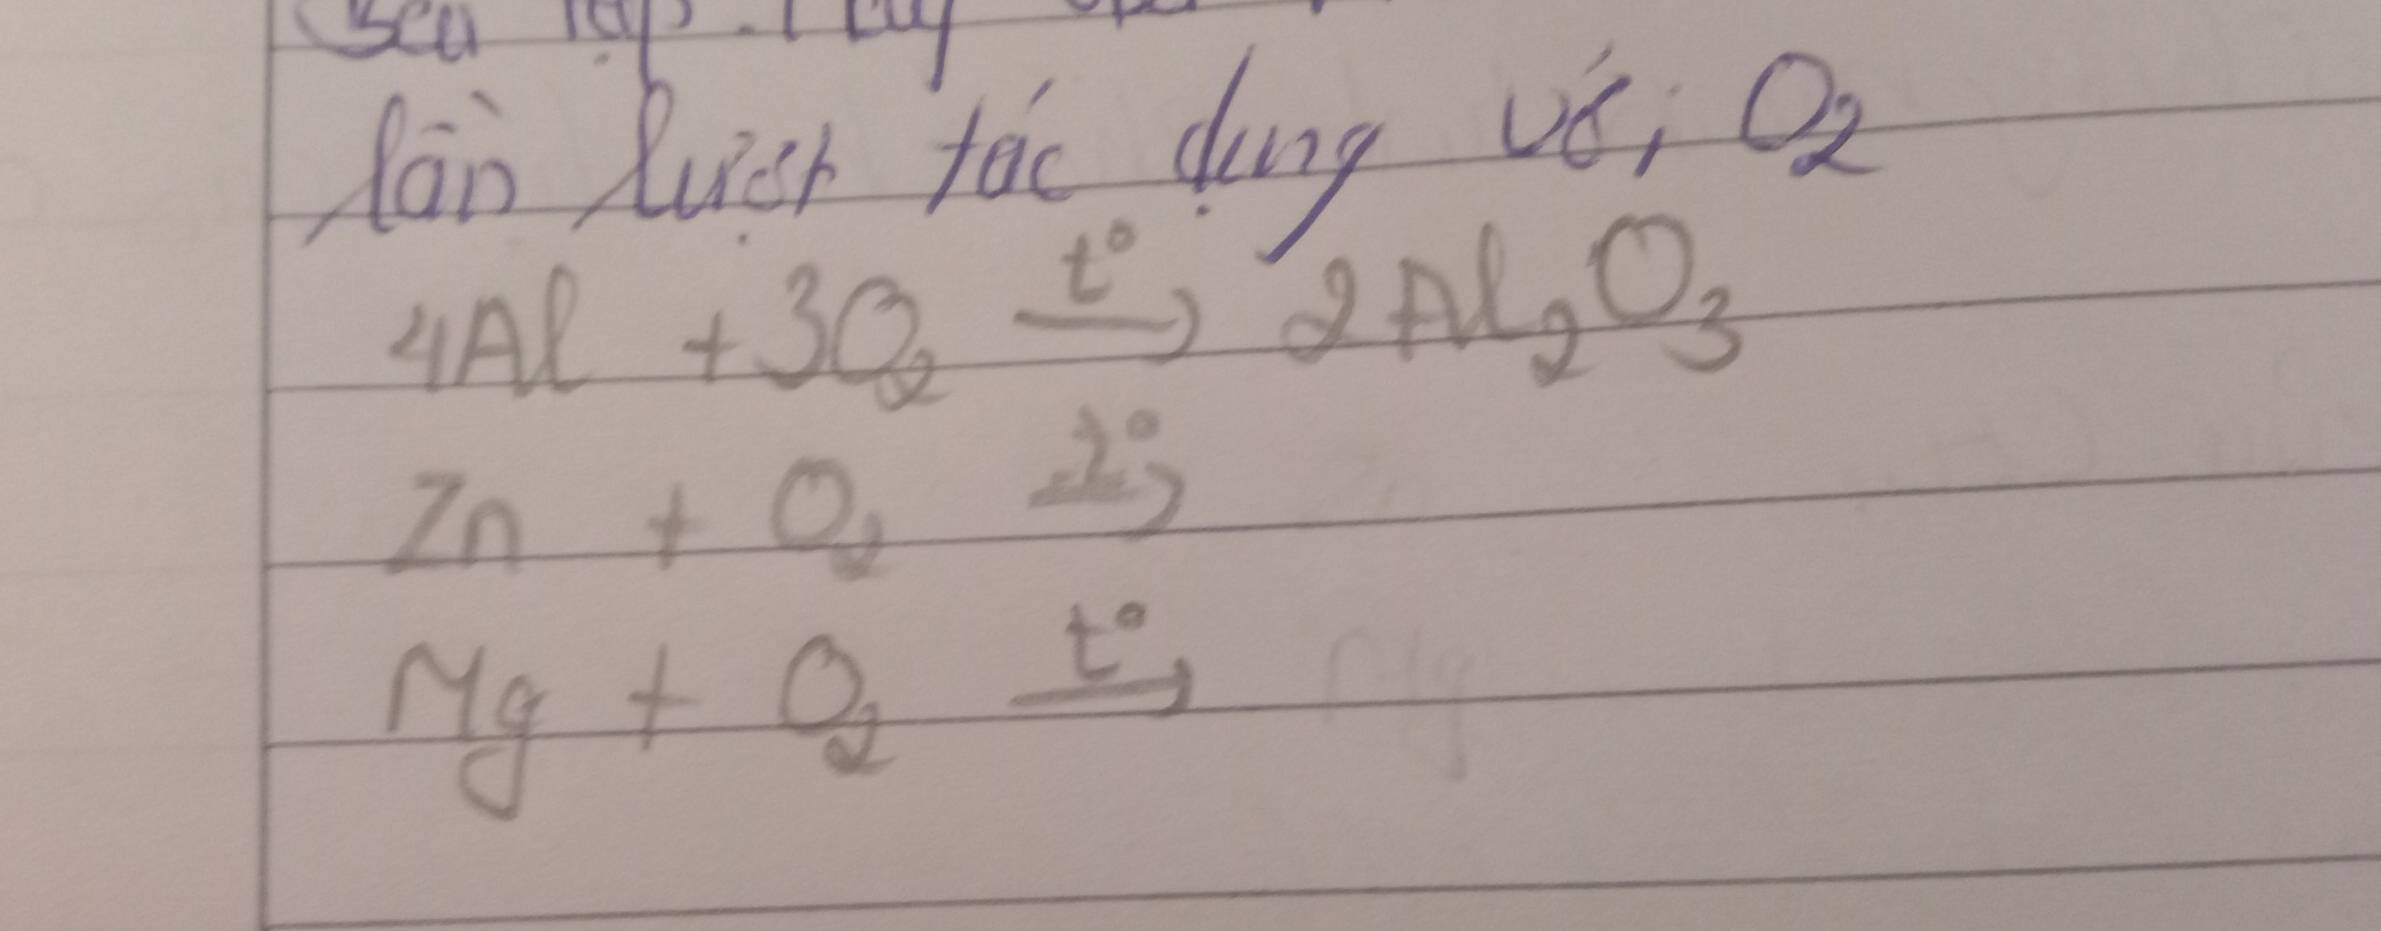 lần lượt tác dụng với O₂
4Al + 3O₂ t°→ 2Al₂O₃
Zn + O₂ t°→
Mg + O₂ t°→